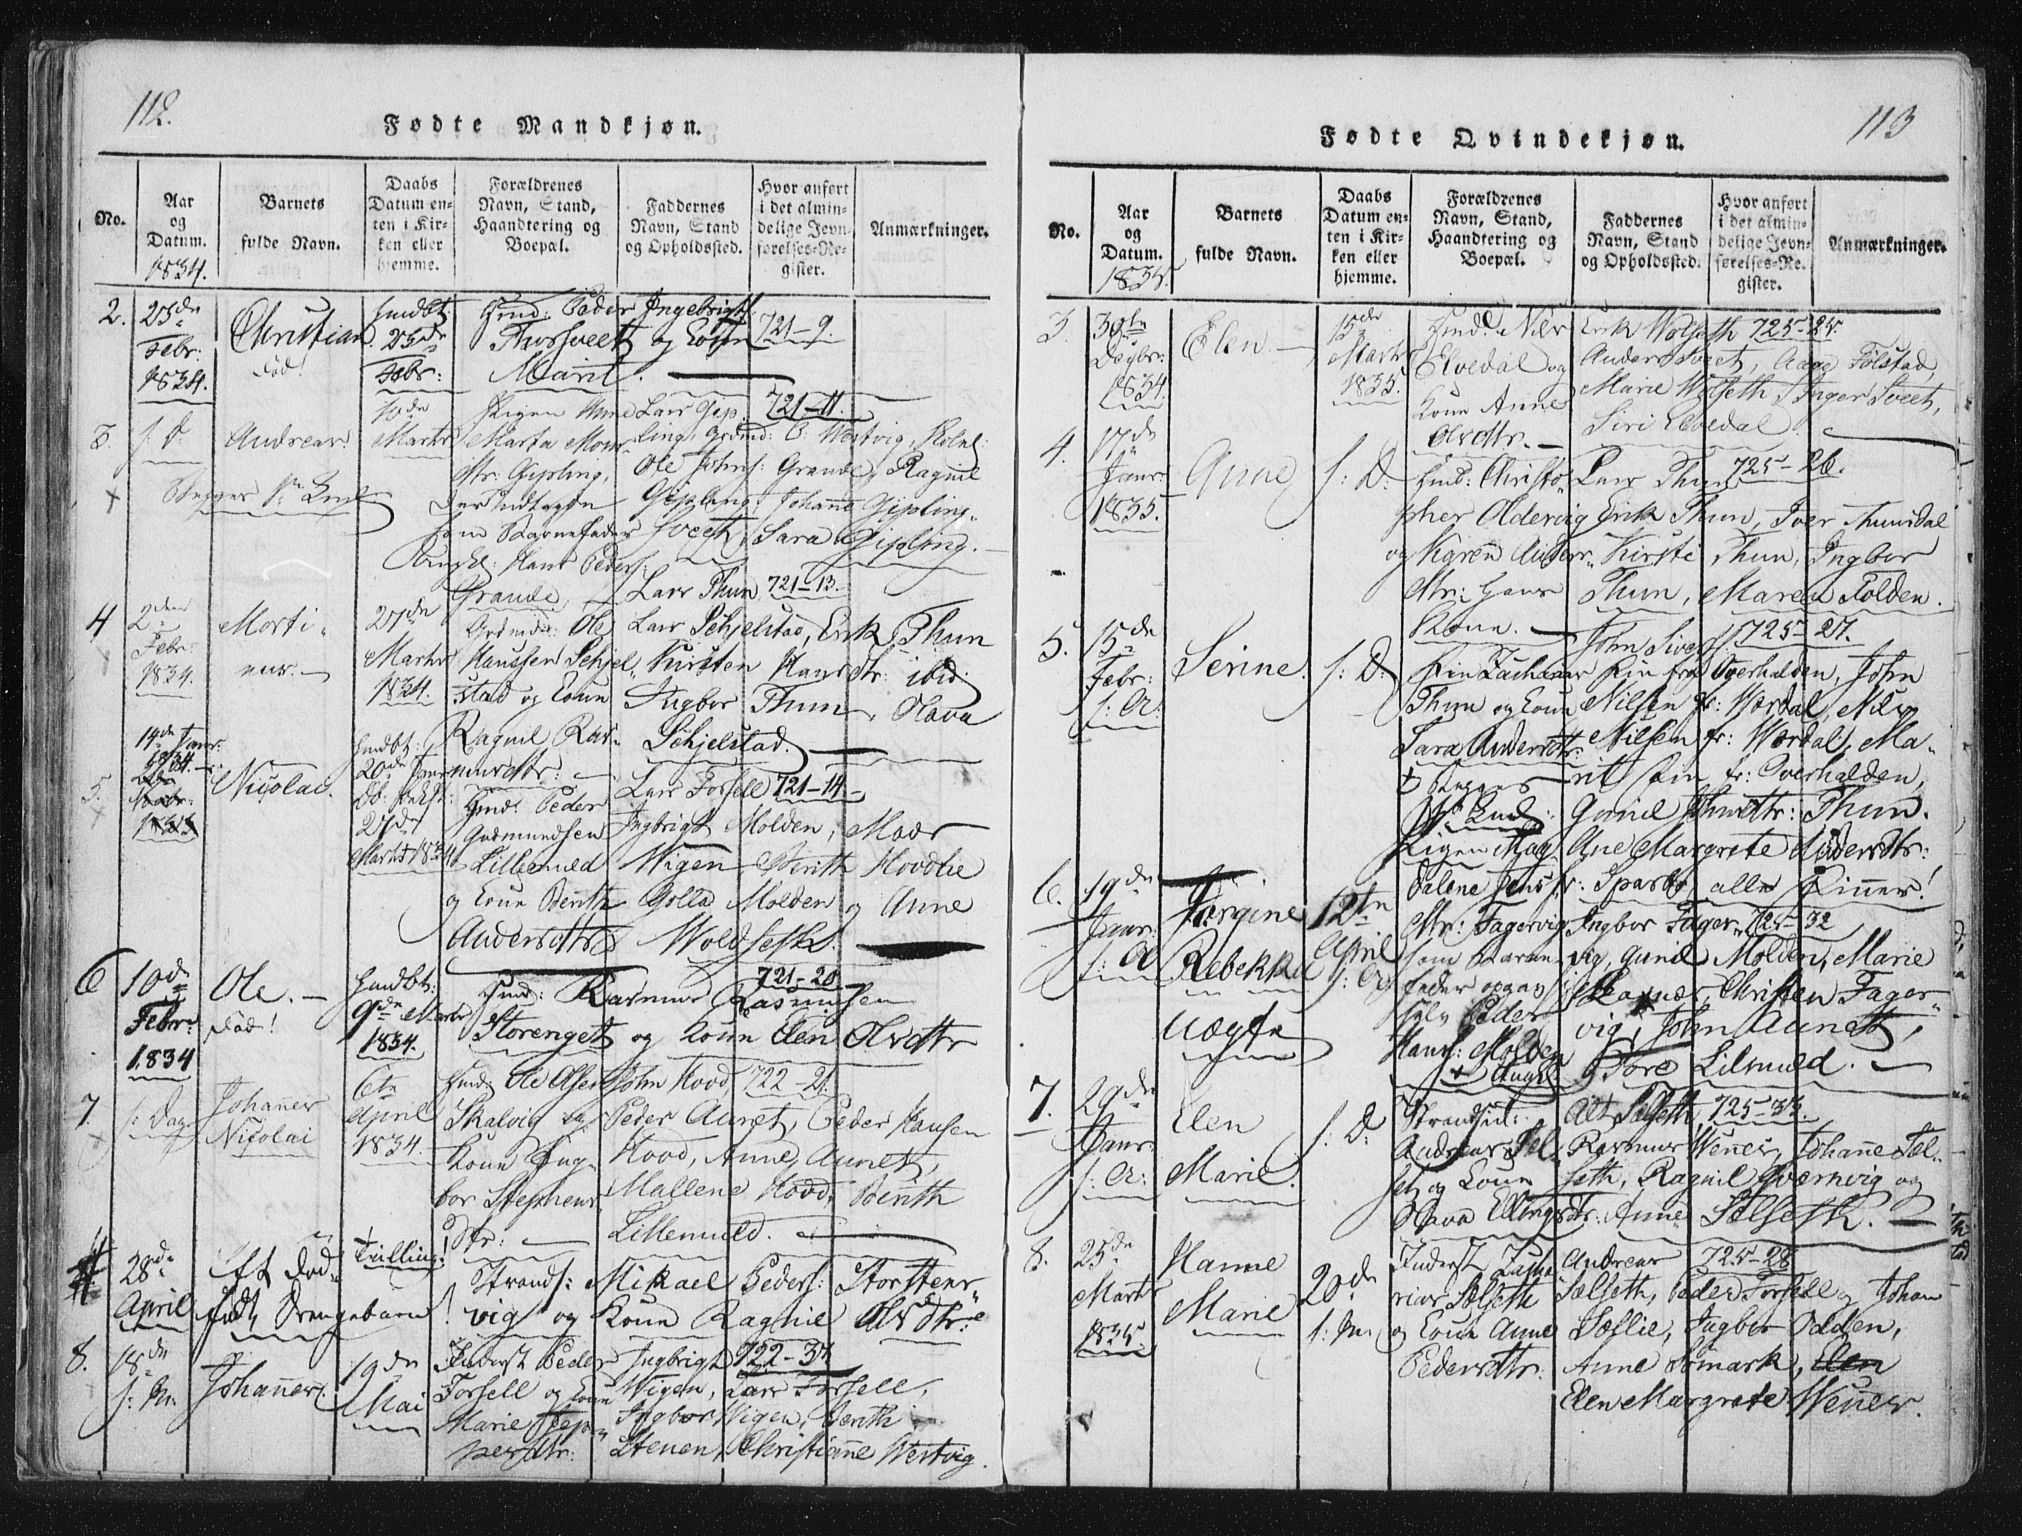 112.
Fødte Mandkjøn.
No.
Aar
og
Datum.
1834.
Barnets
fulde Navn.
Daabs
Datum en-
ten i Kir-
ken eller
hjemme.
Forældrenes
Navn, Stand,
Haandtering og
Boepæl.
Faddernes
Navn, Stand
og Opholdssted.
Hvor anført
i det almin-
delige Jevn-
førelses-Re-
gister.
Anmærkninger.
2.
25de
Febr:
1834.
Christian
død!
hmdbt:
25de
Febr:
Hmd: Peder Ingebrigts:
Thorsveet og Kone
Marit.
721-9.
3.
s: D:
Andreas.
10de
Marts
Pigen Anne
Marta Mons-
dtr: Gipling,
Lars Gip-
ling, Grmd: O: Westvig,
Ole Johns: Grande, Ragnil
Gipling, Johanne Gipling-
sveet, Sara Gipling.
721-11.
som Barnefader
Ungkl: Hans Peders:
Grande.
4
2den
Febr:
1834.
Morti-
nus.
27de
Marts
1834.
Grdmd: Ole
Hanssen Schjel-
stad og Kone
Ragnil Ras-
musdtr:
Lars Thun, 721-13.
Lars Schjelstad, Erik Thun
Kirsten Hansdtr: ibid:
Ingbor Thun, Olava
Schjelstad.
5.
14de Janr:
1834.
Nicolai.
hmdbt:
20de Janr
27de
Marts 1834
Hmd: Peder
Gudmundsen
Lillemuld
og Kone Berith
Andersdtr:
Lars Forsell 721-14.
Ingbrigt Molden, Mads
Wigen, Berith Hovdlie
Golla Molden og Anne
Woldseth.
6
10de
Febr:
1834
Ole.
død!
hmdbt:
9de Marts
1834.
721-20
Hmd: Rasmus Rasmusen
Storenget og Kone Elen Olsdtr
7.
s: Dag
Johannes
Nicolai
6te
April
1834.
Hmd: Ole Olsen
Skalvig og
Kone Ing-
bor Stephens-
dtr:
John Hovd, 722-21.
Peder Aunet, Peder Hansen
Hovd, Anne Aunet,
Mallene Hovd, Berith
Lillemuld.
28de
April
Et død-
født Drengebarn!
Tvilling!
Strands: Mikael Peders: Storstens-
vig og Kone Ragnil Olsdtr:
8.
18de
s: M:
Johannes.
19de
Mai
Inderst Peder
Forsell og Kone
Marie Jesp-
persdtr:
Ingbrigt 722-37
Wigen, Lars Forsell,
Ingbor Wigen, Berith
Stenen, Christianne Westvig.
113
Fødte Qvindekjøn.
No.
Aar
og
Datum.
1835.
Barnets
fulde Navn.
Daabs
Datum en-
ten i Kir-
ken eller
hjemme.
Forældrenes
Navn, Stand,
Haandtering og
Boepæl.
Faddernes
Navn, Stand
og Opholdssted.
Hvor anført
i det almin-
delige Jevn-
førelses-Re-
gister.
Anmærkninger.
3.
30te
Decbr:
1834.
Elen.
15de
Marts
1835.
Hmd: Nils
Elvedal og
Kone Anne
Olsdtr.
Erik Wolseth 725-25.
Anders Sveet, Aage Folstad,
Marie Wolseth, Inger Sveet,
Siri Elvedal.
4.
17de
Janr
1835.
Anne
s: D:
Hmd: Christo-
pher Oldervig
og Karen Anders-
dtr: hans
Kone.
Lars Thun 725-26.
Erik Thun, Iver Thunsdal
Kirsti Thun, Ingbor
Thun, Maren Folden.
5.
15de
Febr:
s: A:
Serine.
s: D:
Fin Zacharias
Thun og Kone
Sara Andersdtr:
John Sivers: 725-27.
Fin fra Overhalden, John
Nilsen fr: Værdal, Nils
Nilsen fr: Værdal, Ma-
rit Fin fr: Overhalden,
Gunil Johnsdtr: Thun.
Ane Margrete Andersdtr:
fr: Sparbo, alle Finner!
6.
19de
Janr:
s: A
Jørgine
Rebekka
uægte
12te
April
s: A
Pigen Mag-
dalene Jens-
dtr: Fagervig
som Barne-
fader opgav
Peder
Hans: Molden
Ingbor Fager- 725-32
vig, Gunil Molden, Marie
Christen Fager-
vig, John Aunet,
Tore Lilmuld.
7.
29de
Janr:
s: A:
Elen
Marie.
s: D:
Strandsid:
Andreas Sel-
set og Kone
Olava Ellingsdtr:
Alt Selseth, 725-33.
Rasmus Wenes, Johanne Sel-
seth, Ragnil Qvernvig og
Anne Selseth.
8.
25de
Marts
1835.
Hanne
Marie
20de
s: M:
Inderst Zacha-
rias Selseth
og Kone Anne
Pedersdtr:
Andreas 725-28
Selseth, Peder Forsell og Johan
Sæflie, Ingbor Odden,
Anne Romark, Elen
Elen Margrete Wenes.